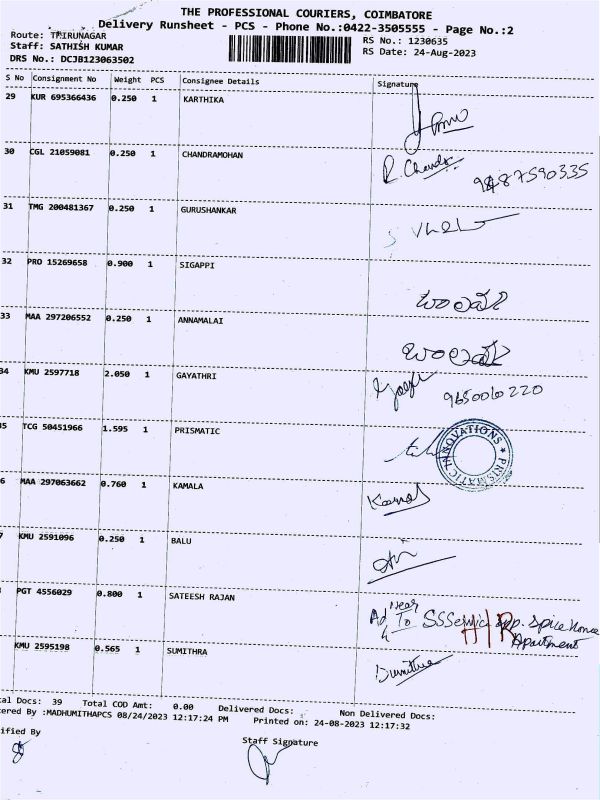 THE PROFESSIONAL COURIERS, COIMBATORE
Delivery Runsheet - PCS - Phone No.:0422-3505555 - Page No.:2
Route: THIRUNAGAR
Staff: SATHISH KUMAR
DRS No.: DCJB123063502
RS No.: 1230635
RS Date: 24-Aug-2023
S No Consignment No Weight PCS Consignee Details Signature
29 KUR 695366436 0.250 1 KARTHIKA
30 CGL 21059081 0.250 1 CHANDRAMOHAN R. Chandr 9487590335
31 TMG 200481367 0.250 1 GURUSHANKAR
32 PRO 15269658 0.900 1 SIGAPPI
33 MAA 297206552 0.250 1 ANNAMALAI
34 KMU 2597718 2.050 1 GAYATHRI 9650060220
35 TCG 50451966 1.595 1 PRISMATIC PRISMATIC INNOVATIONS
6 MAA 297063662 0.760 1 KAMALA Kamal
7 KMU 2591096 0.250 1 BALU
PGT 4556029 0.800 1 SATEESH RAJAN near To opp. Spice Home Apartment
KMU 2595198 0.565 1 SUMITHRA Sumithra
al Docs: 39 Total COD Amt: 0.00 Delivered Docs: Non Delivered Docs:
ered By :MADHUMITHAPCS 08/24/2023 12:17:24 PM Printed on: 24-08-2023 12:17:32
ified By Staff Signature